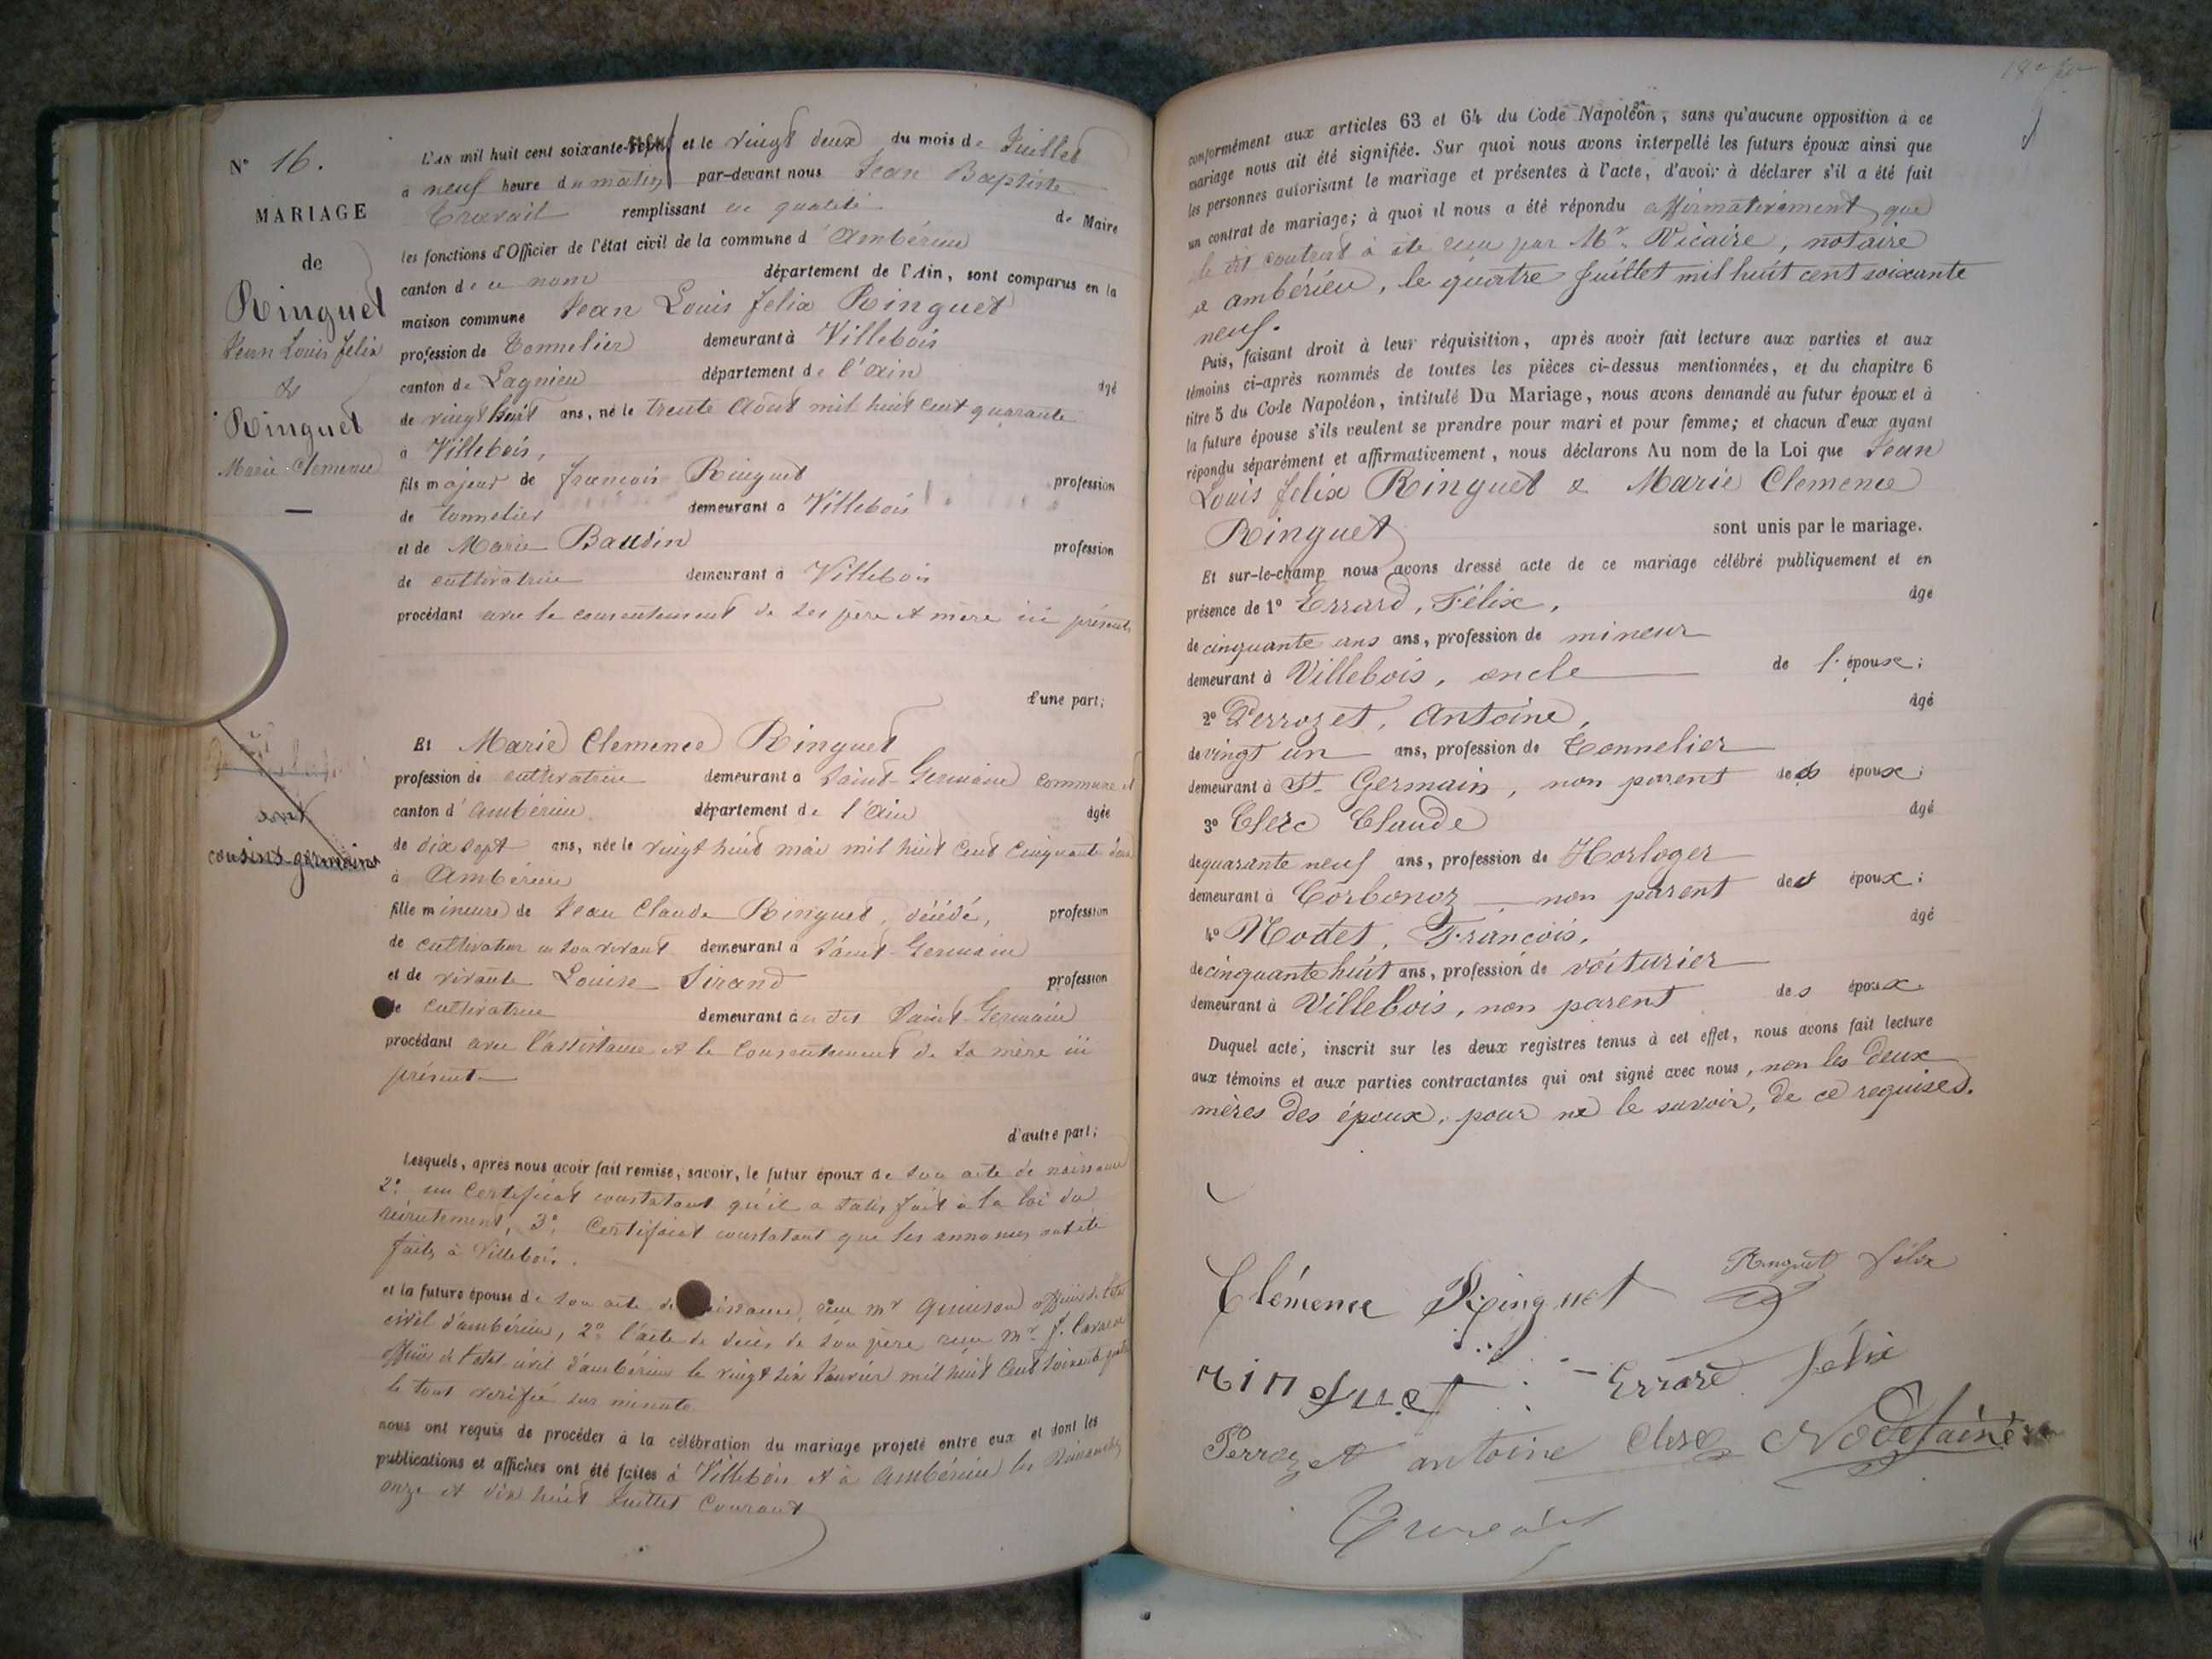 N° 16.
MARIAGE
de
Ringuet
Jean Louis Felix
&
Ringuet
Marie Clemence
cousins-germains
L'AN mil huit cent soixante-neuf et le vingt deux du mois de Juillet
à neuf heure du matin par-devant nous Jean Baptiste
Travail remplissant en qualité de Maire
les fonctions d'Officier de l'état civil de la commune d'Ambérieu
canton de ce nom département de l'Ain, sont comparus en la
maison commune Jean Louis Felix Ringuet
profession de Tonnelier demeurant à Villebois
canton de Lagnieu département de l'Ain âgé
de vingt huit ans, né le trente Août mil huit cent quarante
à Villebois,
fils majeur de François Ringuet profession
de tonnelier demeurant à Villebois
et de Marie Baudin profession
de cultivatrice demeurant à Villebois
procédant avec le consentement de ses père et mère ici présents
d'une part;
Et Marie Clemence Ringuet
profession de cultivatrice demeurant à Saint-Germain commune et
canton d'ambérieu département de l'Ain âgée
de dix sept ans, née le vingt huit mai mil huit cent cinquante deux
à Ambérieu
fille mineure de Jean Claude Ringuet, décédé, profession
de cultivateur en son vivant demeurant à Saint-Germain
et de vivante Louise Sirand profession
de cultivatrice demeurant au dit Saint-Germain
procédant avec l'assistance et le consentement de sa mère ici
présente
d'autre part;
Lesquels, après nous avoir fait remise, savoir, le futur époux de son acte de naissance
2° un certificat constatant qu'il a satisfait à la loi du
recrutement, 3° Certificat constatant que les annonces ont été
faites à Villebois.
et la future épouse de son acte de naissance, reçu mr Quinson officier de l'état
civil d'ambérieu, 2° l'acte de décès de son père reçu mr J.
officier de l'état civil d'ambérieu le vingt six Janvier mil huit cent soixante quatre
le tout vérifié sur minute
nous ont requis de procéder à la célébration du mariage projeté entre eux et dont les
publications et affiches ont été faites à Villebois et à Ambérieu les Dimanches
onze et dix huit Juillet Courant
conformément aux articles 63 et 64 du Code Napoléon, sans qu'aucune opposition à ce
mariage nous ait été signifiée. Sur quoi nous avons interpellé les futurs époux ainsi que
les personnes autorisant le mariage et présentes à l'acte, d'avoir à déclarer s'il a été fait
un contrat de mariage; à quoi il nous a été répondu affirmativement que
le dit contrat à été reçu par Mr. Vicaire, notaire
a ambérieu, le quatre Juillet mil huit cent soixante
neuf.
Puis, faisant droit à leur réquisition, après avoir fait lecture aux parties et aux
témoins ci-après nommés de toutes les pièces ci-dessus mentionnées, et du chapitre 6
titre 5 du Code Napoléon, intitulé Du Mariage, nous avons demandé au futur époux et à
la future épouse s'ils veulent se prendre pour mari et pour femme; et chacun d'eux ayant
répondu séparément et affirmativement, nous déclarons Au nom de la Loi que Jean
Louis Felix Ringuet & Marie Clemence
Ringuet sont unis par le mariage.
Et sur-le-champ nous avons dressé acte de ce mariage célébré publiquement et en
présence de 1° Errard, Félix, âgé
de cinquante ans ans, profession de mineur
demeurant à Villebois, oncle de l'épouse;
2° Perrozet, Antoine, âgé
de vingt un ans, profession de Tonnelier
demeurant à St. Germain, non parent des époux;
3° Clerc Claude âgé
de quarante neuf ans, profession de Horloger
demeurant à Corbonoz, non parent des époux;
4° Nodet, François, âgé
de cinquante huit ans, profession de voiturier
demeurant à Villebois, non parent des époux.
Duquel acte, inscrit sur les deux registres tenus à cet effet, nous avons fait lecture
aux témoins et aux parties contractantes qui ont signé avec nous, non les deux
mères des époux, pour ne le savoir, de ce requises.
Clémence Ringuet Ringuet Félix
ringuet Errard félix
Perrozet antoine Clerc Nodet ainé
Travail